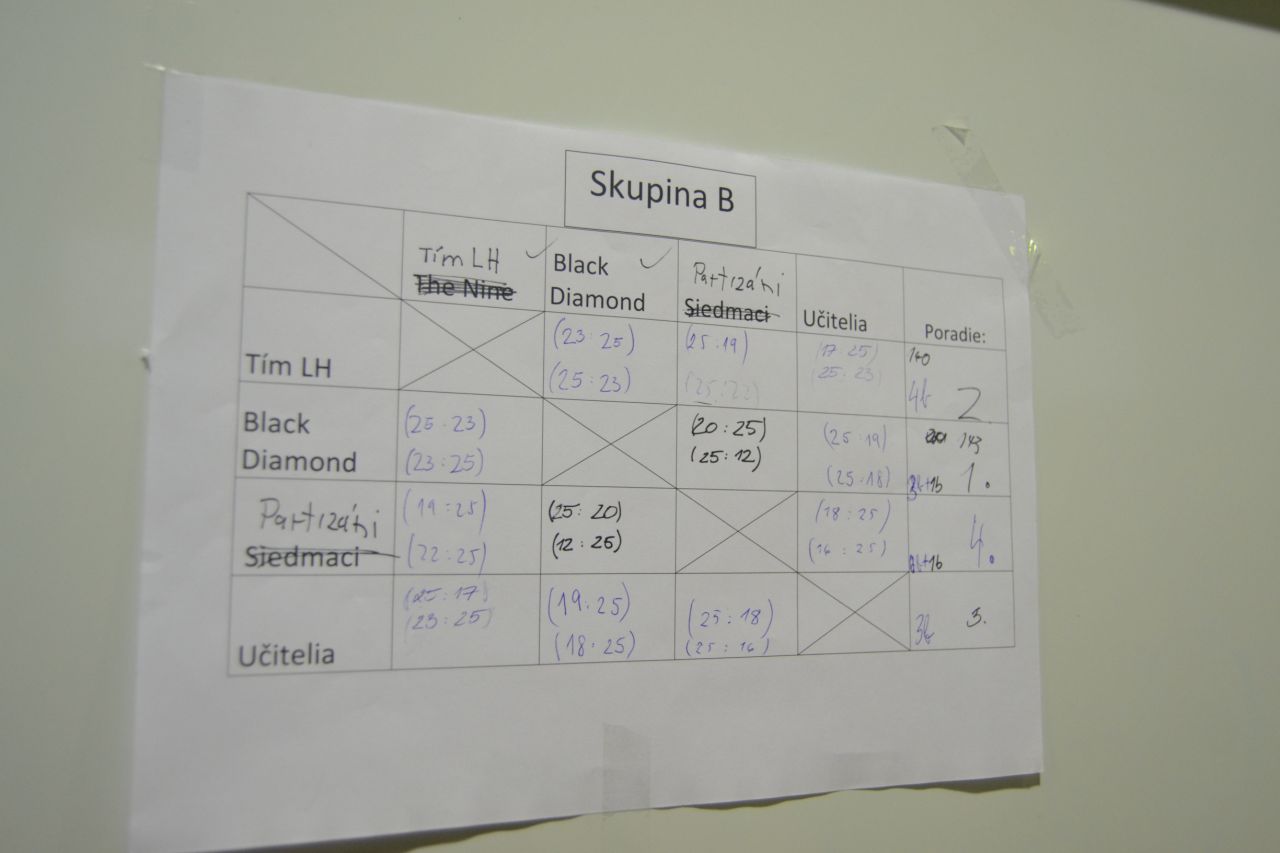 Skupina B
Tím LH
The Nine
Black
Diamond
Partizáni
Siedmaci
Učitelia
Poradie:
Tím LH
(23:25)
(25:23)
(25:19)
(17:25)
(25:23)
140
4b 2
Black
Diamond
(25:23)
(23:25)
(20:25)
(25:12)
(25:19)
(25:18)
143
+1b 1.
Partizáni
Siedmaci
(19:25)
(22:25)
(25:20)
(12:25)
(18:25)
(16:25)
+1b 4.
Učitelia
(25:17)
(23:25)
(19:25)
(18:25)
(25:18)
(25:16)
3b 3.